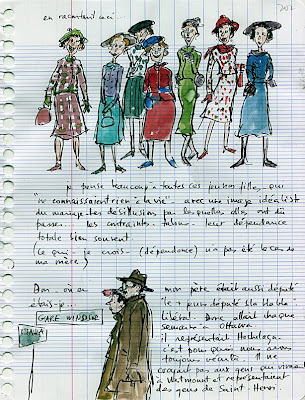 en racontant ceci...
je pense beaucoup à toutes ces jeunes filles, qui
"ne connaissaient rien à la vie" - avec une image idéaliste
du mariage. Les désillusions par lesquelles elles ont dû
passer... les contraintes... tabous... leur dépendance
totale bien souvent.
(ce qui - je crois - (dépendance) n'a pas été le cas de
ma mère.)
Bon - où en
étais-je...
GARE WINDSOR
mon père était aussi député
le + jeune député bla bla bla
libéral. Donc allait chaque
semaine à Ottawa.
il représentait Hochelaga.
c'est pourquoi nous avons
toujours vécu là. Il ne
croyait pas aux gens qui vivaient
à Westmount et représentaient
des gens de Saint-Henri.